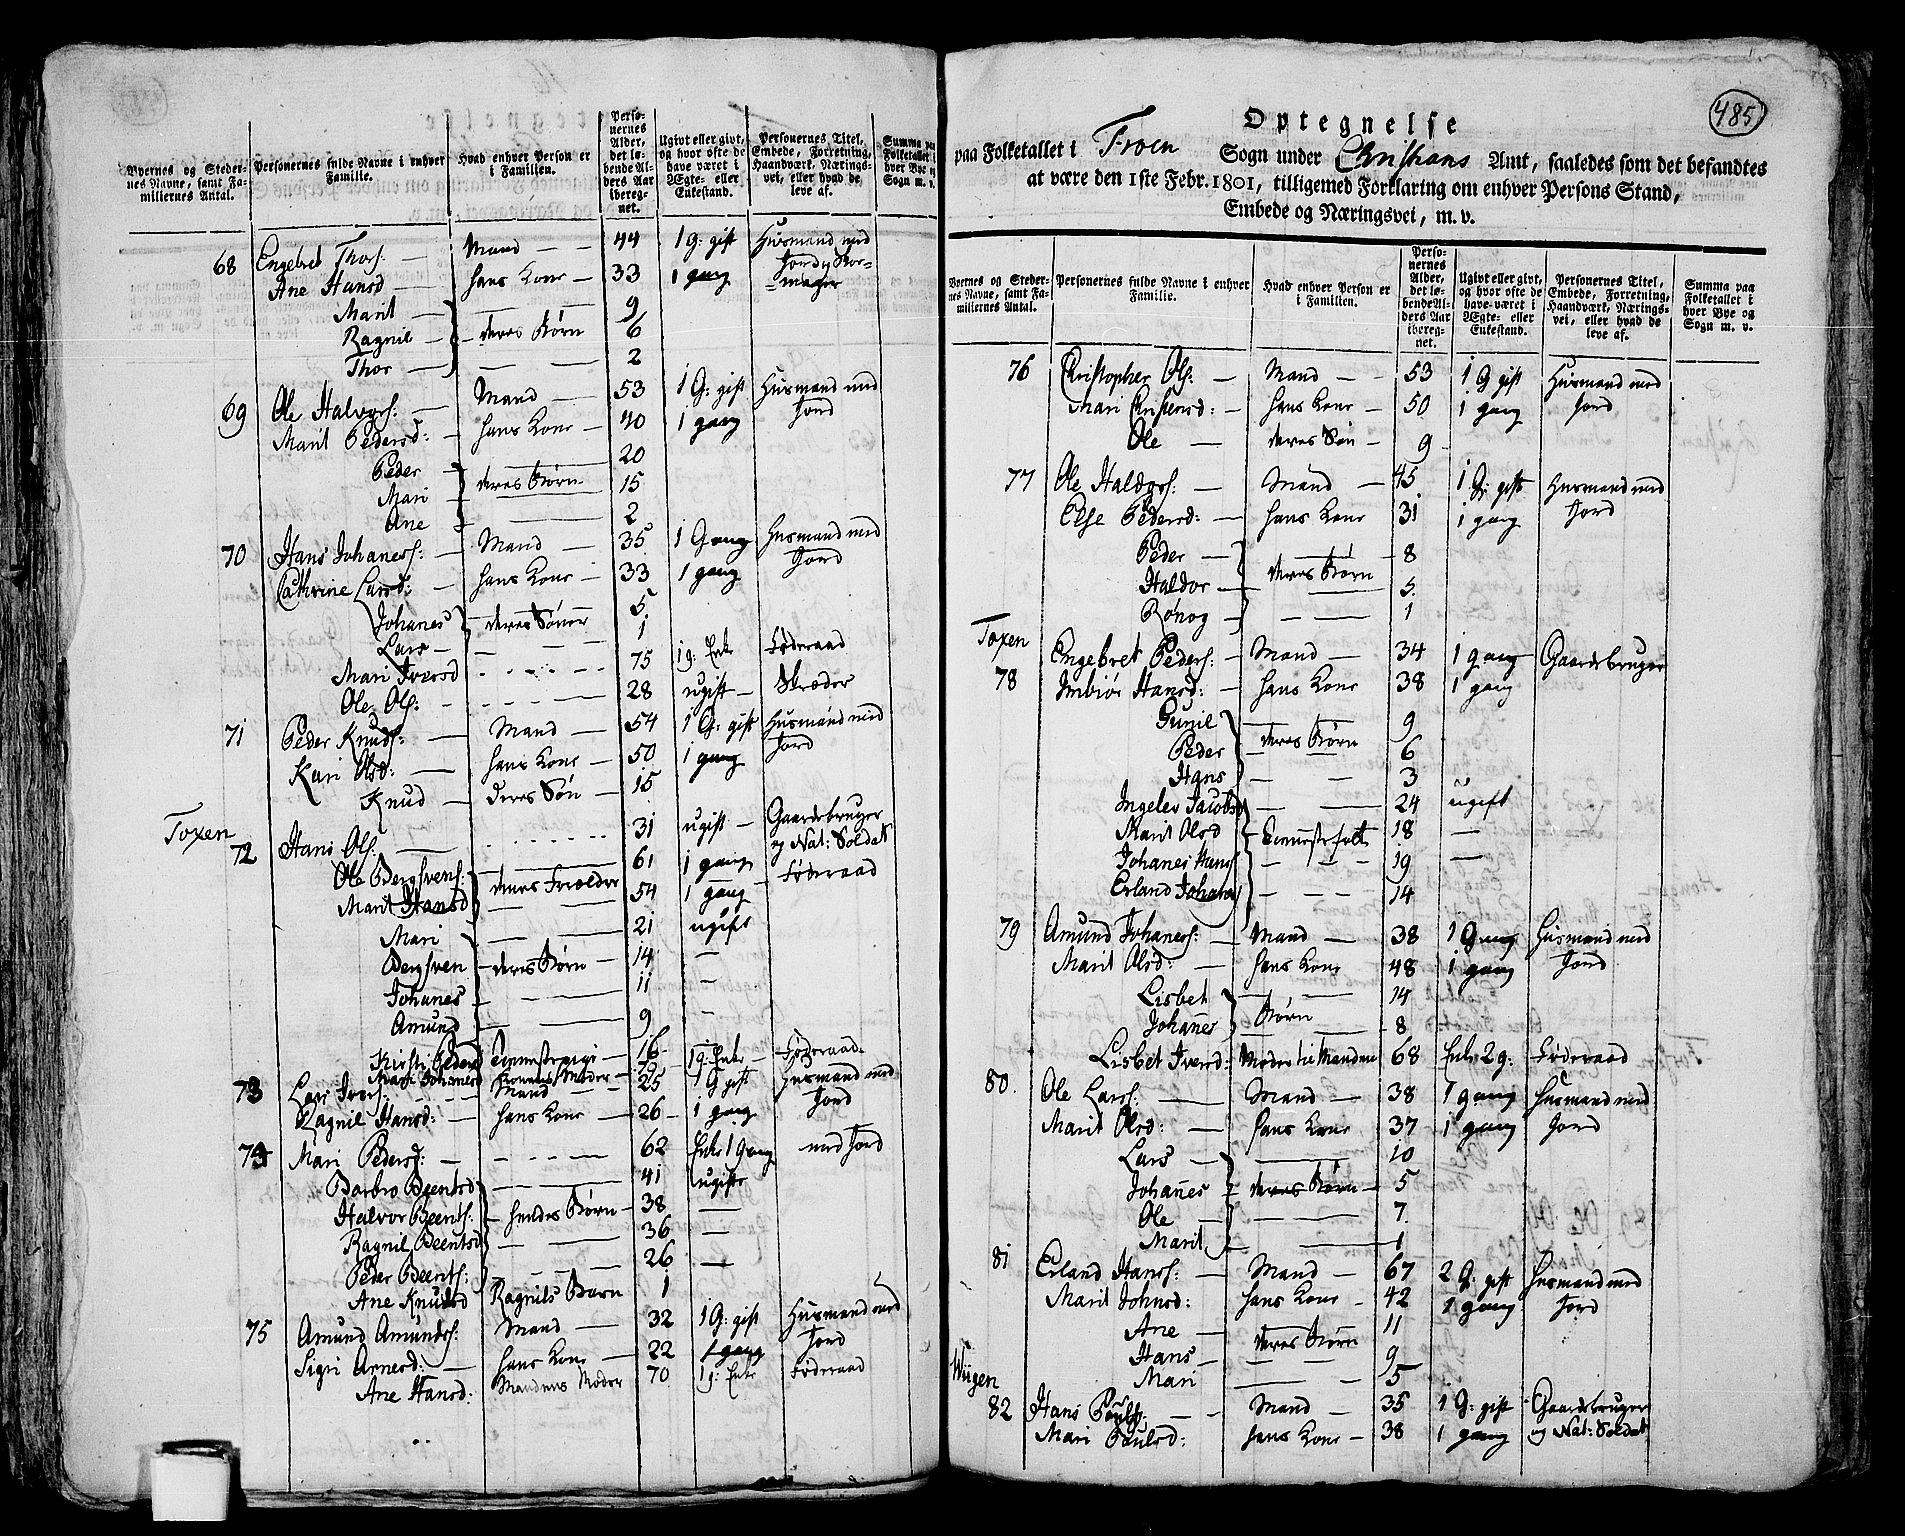 Byernes og Steder-
nes Navne, samt Fa-
miliernes Antal.
Personernes fulde Navne i enhver
Familie.
Hvad enhver Person er
i Familien.
Perso-
nernes
Alder,
det lø-
bende Al-
ders Aar
iberegnet.
Ugivt eller givt,
og hvor ofte de
have været i
Ægte- eller
Enkestand.
Personernes Titel,
Embede, Forretning,
Haandværk, Nærings-
vei, eller hvad de
leve af.
Summa paa
Folketallet i
hver Bye og
Sogn m. v.
68 Engebret Thors: — Mand — 44 1 G: gift Huusmand med
Ane Hansd — hans Kone — 33 1 gang Jord og Skor-
mager
Marit 9
Ragnil — deres Børn 6
Thor — 2
69 Ole Halvors: — Mand — 53 1 G: gift Huusmand med
Marit Pedersd: — hans Kone — 40 1 gang Jord
Peder 20
Mari deres Børn 15
Ane 2
70 Hans Johaners: — Mand — 35 1 Gang Huusmand med
Cathrine Larsd: hans Kone — 33 1 gang Jord
Johanes deres Sønner 5
Lars — 1
Mari Iversd 75 1 g: Enke Føderaad
Ole Ols: 28 ugift — Skræder
71 Peder Knuds: — Mand — 54 1 G: gift Huusmand med
Kari Olsd: — hans Kone — 50 1 gang Jord
Knud — deres Søn — 15
Toxen
72 Hans Ols: 31 ugift — Gaardebruger
og Nat: Soldat
Ole Bergsvens: 61 1 gang — Føderaad
Marit Hansd deres Forældre 54 1 gang
Mari 21 ugift
Bergsven deres Børn — 14 —
Johanes 11 —
Amund 9 —
Kirsti Pedersd tienestepige — 16
Mari Johanesd Konens Moder 79 1 g: Enke — Føderaad
73 Lars Ivers: Mand 25 1 G gift Huusmand med
Ragnil Hansd: — hans Kone — 26 1 gang Jord
74 Mari Pedersd: — 62 Enke 1 Gang med Jord
Barbro Beentsd 41 ugifte
Halvor Beents: hendes Børn — 38 —
Ragnil Beentsd 36 —
Peder Beents: 26 —
Ane Knudsd Ragnils Barn 1
75 Amund Amunds: Mand — 32 1 G: gift Huusmand med
Sigri Arnesd: — hans Kone — 22 1 gang Jord
Ane Hansd: Mandens Moder 70 1 g: Enke Føderaad
485
Optegnelse
paa Folketallet i Froen Sogn under Christians Amt, saaledes som det befandtes
at være den 1ste Febr. 1801, tilligemed Forklaring om enhver Persons Stand,
Embede og Næringsvei, m. v.
Byernes og Steder-
nes Navne, samt Fa-
miliernes Antal.
Personernes fulde Navne i enhver
Familie.
Hvad enhver Person er
i Familien.
Perso-
nernes
Alder,
det lø-
bende Al-
ders Aar
ibereg-
net.
Ugivt eller givt,
og hvor ofte de
have været i
Ægte- eller
Enkestand.
Personernes Titel,
Embede, Forretning,
Haandværk, Nærings-
vei, eller hvad de
leve af.
Summa paa
Folketallet i
hver Bye og
Sogn m. v.
76 Christopher Ols: — Mand — 53 1 G gift Huusmand med
Mari Christensd: — hans Kone — 50 1 gang Jord
Ole — deres Søn — 9
77 Ole Haldors: — Mand — 45 1 G: gift Huusmand med
Else Pedersd: — hans Kone 31 1 gang Jord
Peder — 8
Haldor — deres Børn 5
Rønog — 1
Toxen
78 Engebret Peders: — Mand — 34 1 gang Gaardebruger
Imbiør Hansd: — hans Kone 38 1 gang
Gunil 9
Peder deres Børn 6
Hans 3
Ingelev Jacobsd 24 ugift
Marit Olsd Tienestefolk 18 —
Johanes Hans: 19 —
Erland Johanes: 14
79 Amund Johaners: — Mand — 38 1 Gang Huusmand med
Marit Olsd: — hans Kone 48 1 gang Jord
Lisbet 14
Johanes Børn 8
Lisbet Iversd: Moder til Manden 68 Enke 2 g: Føderaad
80. Ole Lars: — Mand — 38 1 gang Huusmand med
Marit Olsd: — hans Kone 37 1 gang Jord
Lars — 10
Johanes deres Børn — 5
Ole — 7
Marit 1
81 Erland Hans: — Mand — 67 2 G: gift Huusmand med
Marit Johnsd: hans Kone — 42 1 gang Jord
Ane — 11
Hans — deres Børn 9
Mari 5
Wiigen
82 Hans Pouls: — Mand — 35 1 G: gift Gaardebruger
Mari Poulsd: hans Kone — 38 1 gang og Nat: Soldat